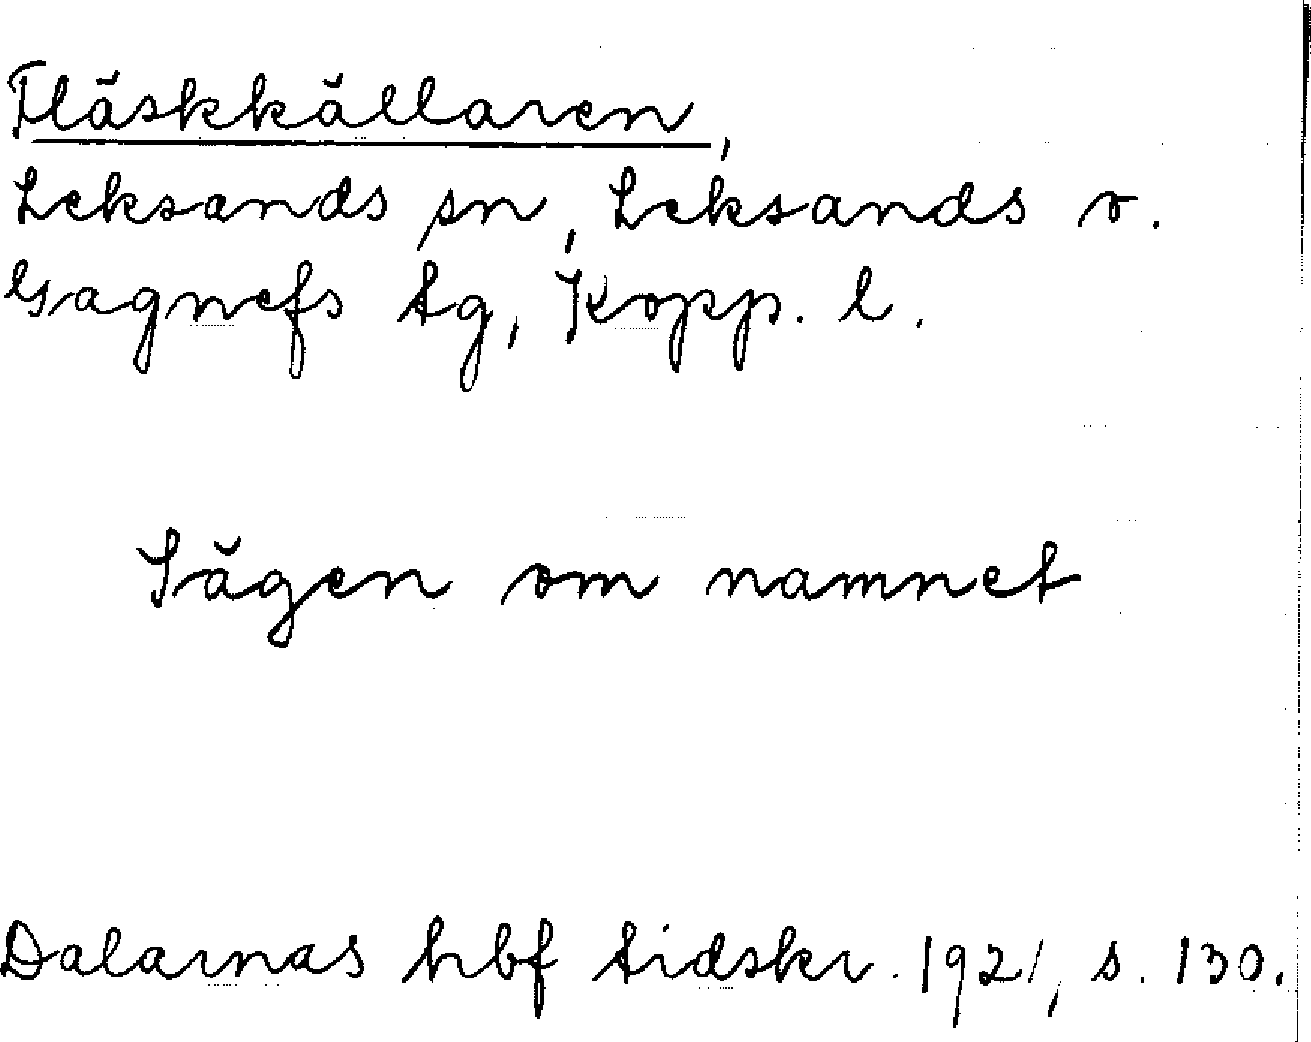 Fläskkällaren,
Leksands sn, Leksands o.
Gagnefs tg, Kopp. l.
Sägen om namnet
Dalarnas hbf tidskr. 1921, s. 130.